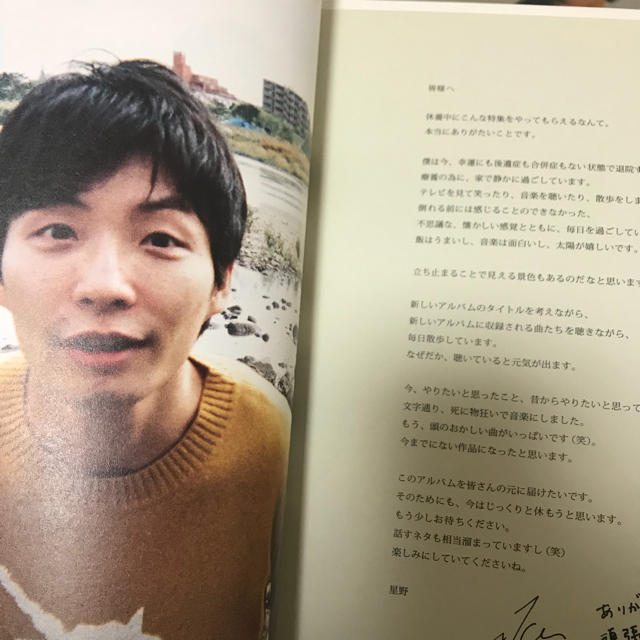 皆様へ
休養中にこんな特集をやってもらえるなんて。
本当にありがたいことです。
僕は今、幸運にも後遺症も合併症もない状態で退院す
療養の為に、家で静かに過ごしています。
テレビを見て笑ったり、音楽を聴いたり、散歩をしま
倒れる前には感じることのできなかった、
不思議な、懐かしい感覚とともに、毎日を過ごしてい
飯はうまいし、音楽は面白いし、太陽が嬉しいです。
立ち止まることで見える景色もあるのだなと思います
新しいアルバムのタイトルを考えながら、
新しいアルバムに収録される曲たちを聴きながら、
毎日散歩しています。
なぜだか、聴いていると元気が出ます。
今、やりたいと思ったこと、昔からやりたいと思って
文字通り、死に物狂いで音楽にしました。
もう、頭のおかしい曲がいっぱいです(笑)。
今までにない作品になったと思います。
このアルバムを皆さんの元に届けたいです。
そのためにも、今はじっくりと休もうと思います。
もう少しお待ちください。
話すネタも相当溜まっていますし(笑)
楽しみにしていてくださいね。
星野
ありが
頑張